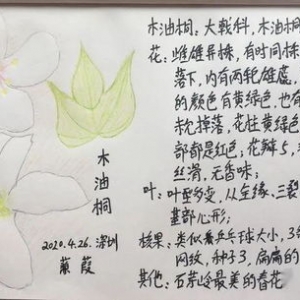 木油桐，大戟科，木油桐
花：雌雄异株，有时同株
落下，内有两轮雄蕊
的颜色有黄绿色，也有
掉落，花柱黄绿色
部都是红色；花瓣5，
丝滑，无香味；
叶：叶型多变，从全缘，三裂
基部心形；
核果：类似乒乓球大小，3
网纹，种子3，扁扁的
其他：石芽岭最美的春花
木油桐
2020.4.26.深圳
蒹葭